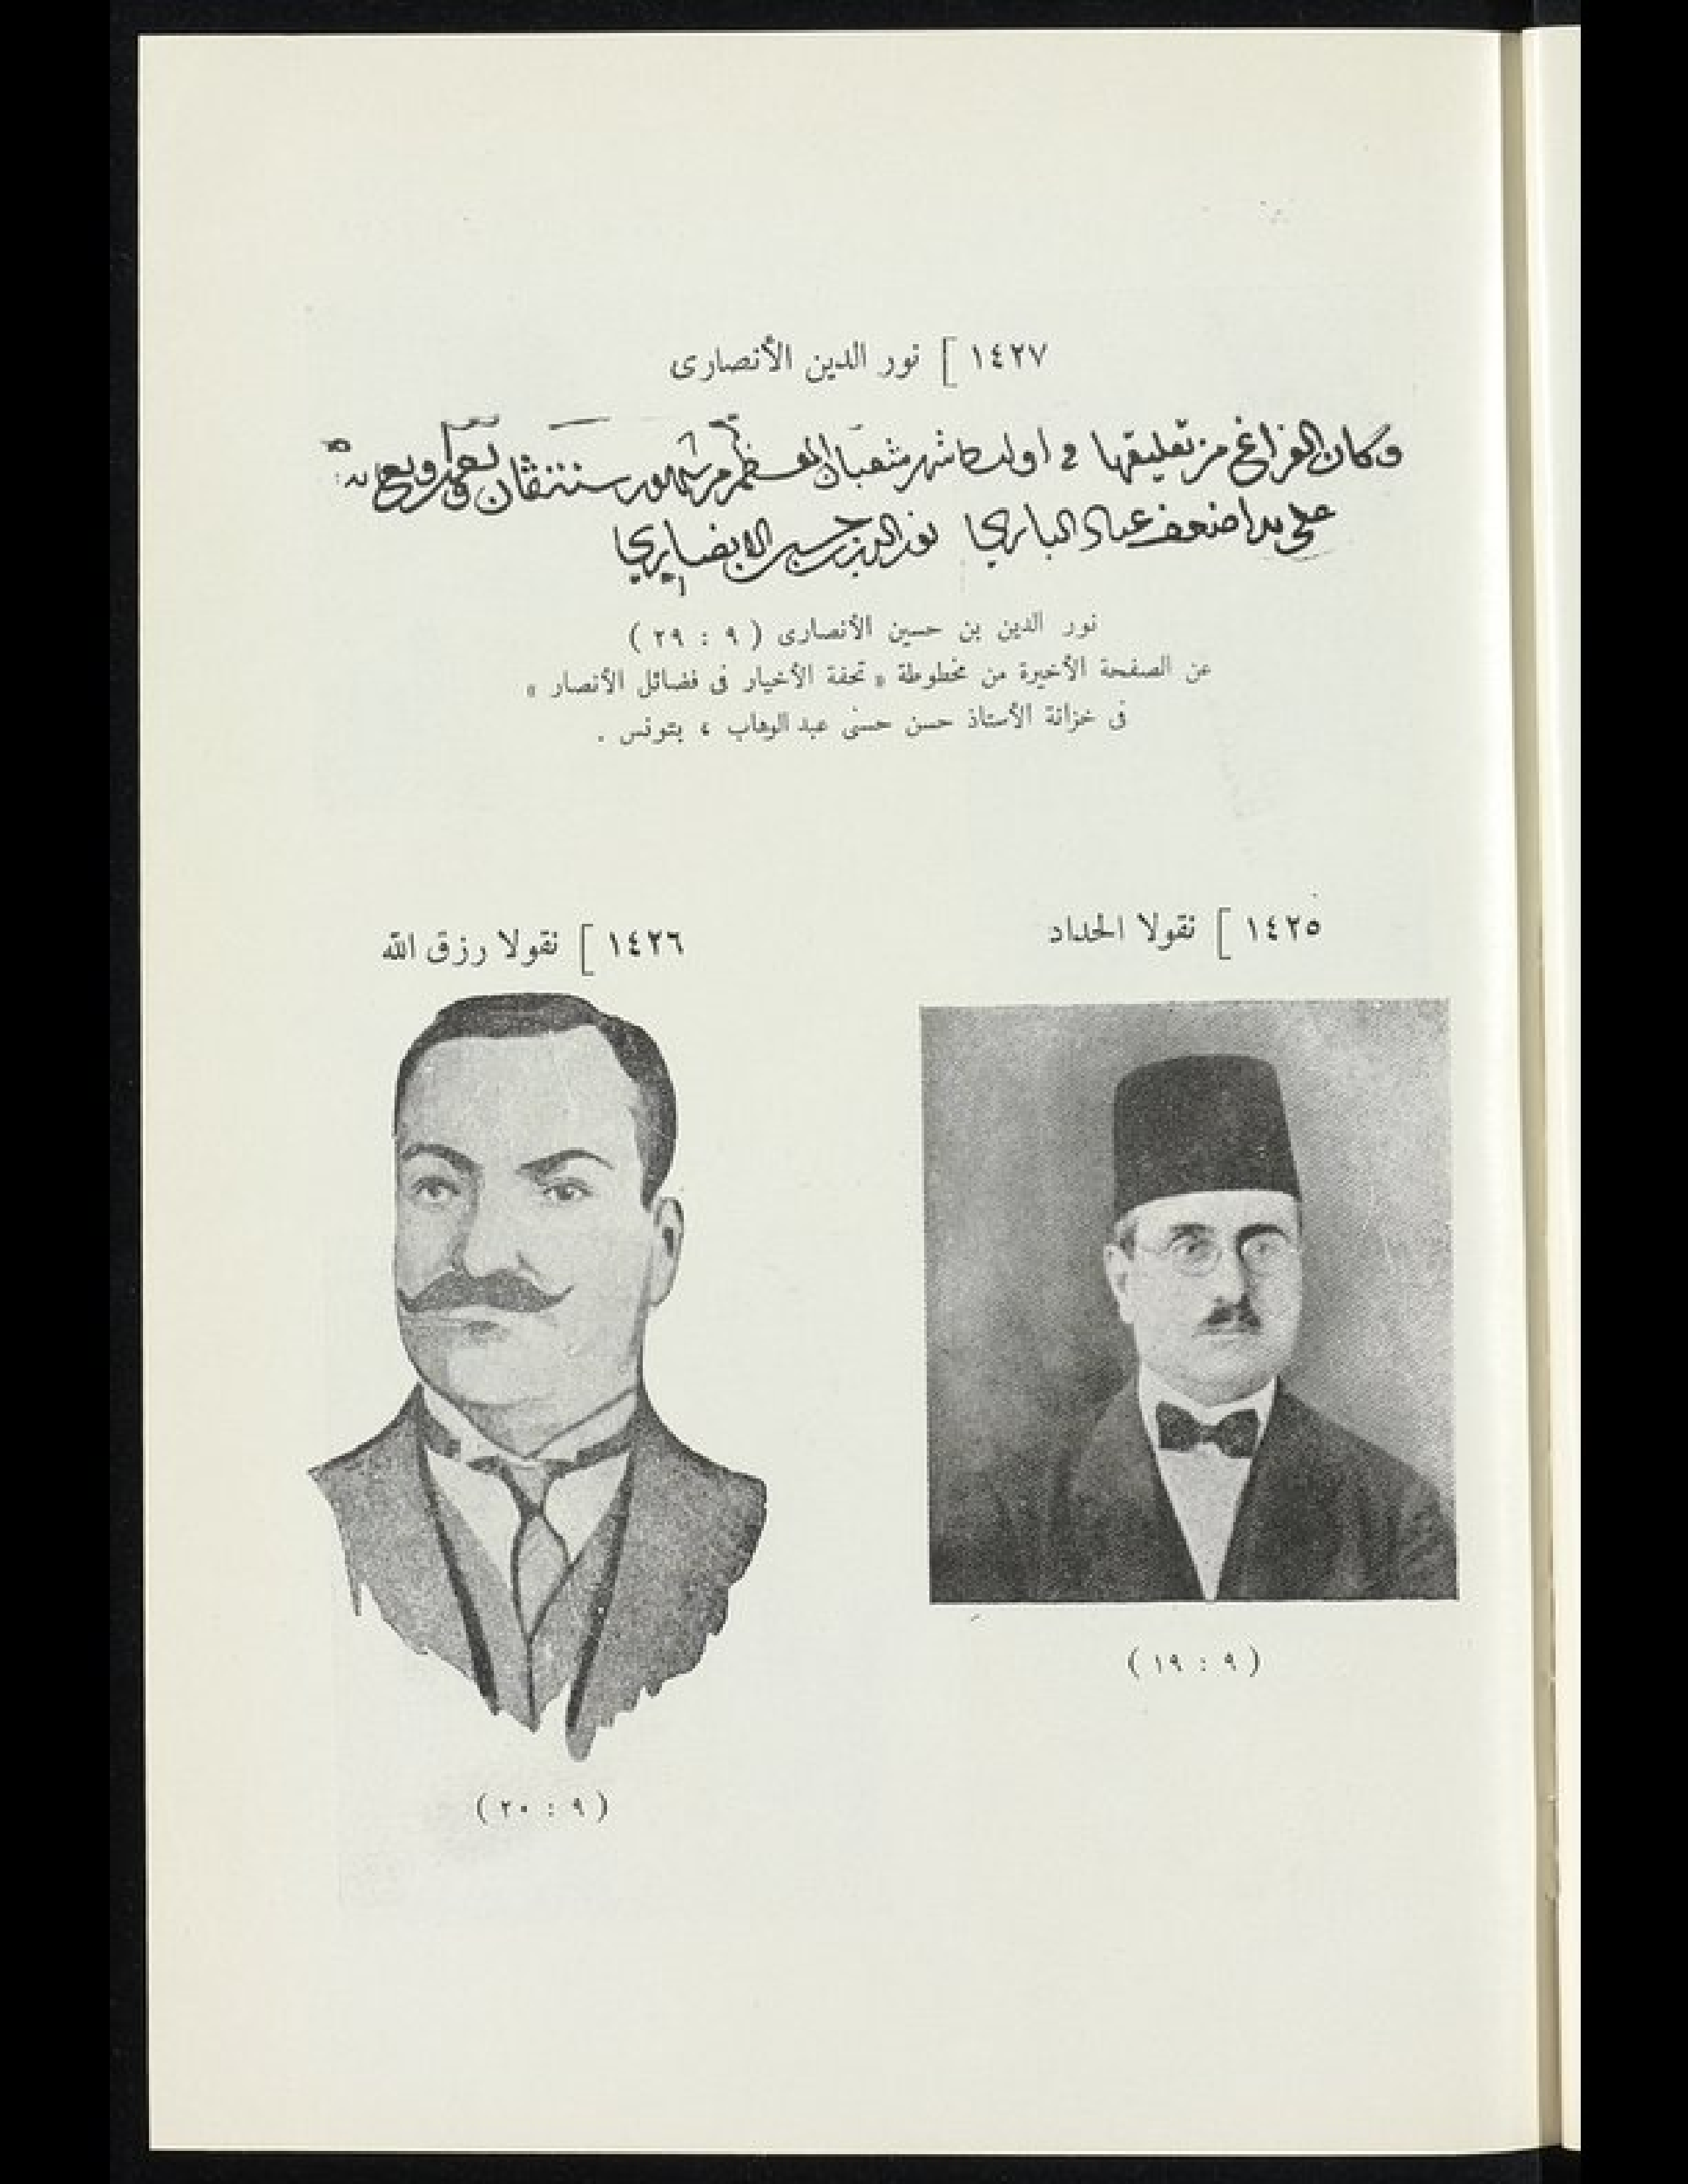 ١٤٢٧ ] نور الدين الأنصارى
وكان الفراغ من تعليقها في اوليات شهر شعبان المعظم من شهور سنة ثمان
على يد اضعف عباد الباري نور الدين بن حسين الانصاري
نور الدين بن حسين الأنصارى ( ٩ : ٢٩ )
عن الصفحة الأخيرة من مخطوطة « تحفة الأخيار فى فضائل الأنصار »
فى خزانة الأستاذ حسن حسنى عبد الوهاب ، بتونس .
١٤٢٥ ] نقولا الحداد
١٤٢٦ ] نقولا رزق الله
( ٩ : ١٩ )
( ٩ : ٢٠ )